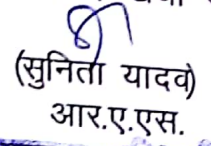 (सुनिता यादव)
आर.ए.एस.